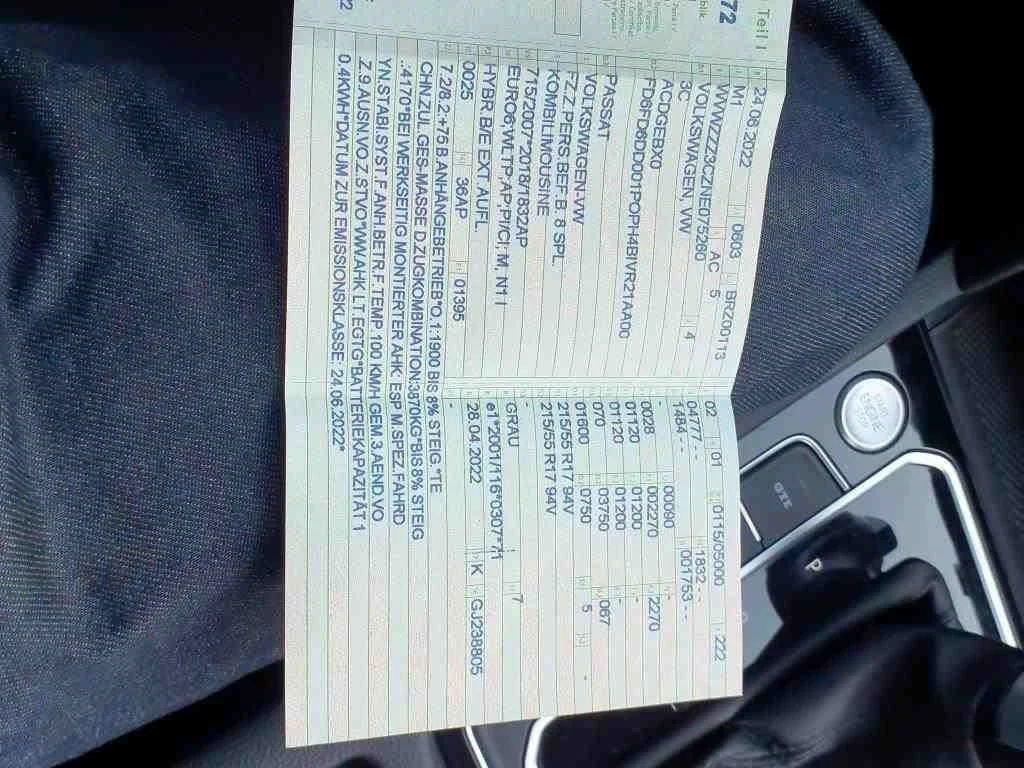 Teil I
72
22
24.08.2022 0603 BRZ00113
M1 AC 5
WVWZZZ3CZNE075280 4
VOLKSWAGEN, VW
3C
ACDGEBX0
PASSAT
VOLKSWAGEN-VW
FZ.Z.PERS.BEF.B. 8 SPL.
KOMBILIMOUSINE
715/2007*2018/1832AP
EURO6;WLTP,AP,PI/CI; M, N1 I
HYBR.B/E EXT.AUFL.
0025 36AP 01395
02 01 0115/05000 222
04777-- 1832--
1484-- 001753--
- 00090 -
0028 002270 2270
01120 01200 -
01120 01200 -
070 03750 067
01600 0750 5 -
215/55 R17 94V
215/55 R17 94V
-
GRAU 7
e1*2001/116*0307*71
28.04.2022 K GJ238805
-
7.2/8.2:+75 B.ANHÄNGEBETRIEB*O.1:1900 BIS 8% STEIG.*TE
CHN.ZUL.GES-MASSE D.ZUGKOMBINATION:3870KG*BIS 8% STEIG
.:4170*BEI WERKSEITIG MONTIERTER AHK: ESP M.SPEZ.FAHRD
YN.STABI.SYST.F.ANH.BETR.F.TEMP.100 KM/H GEM.3.AEND.VO
Z.9.AUSN.VO.Z.STVO*WW.AHK LT.EGTG*BATTERIEKAPAZITÄT:1
0.4KWH*DATUM ZUR EMISSIONSKLASSE: 24.06.2022*
START
ENGINE
STOP
GTE
P